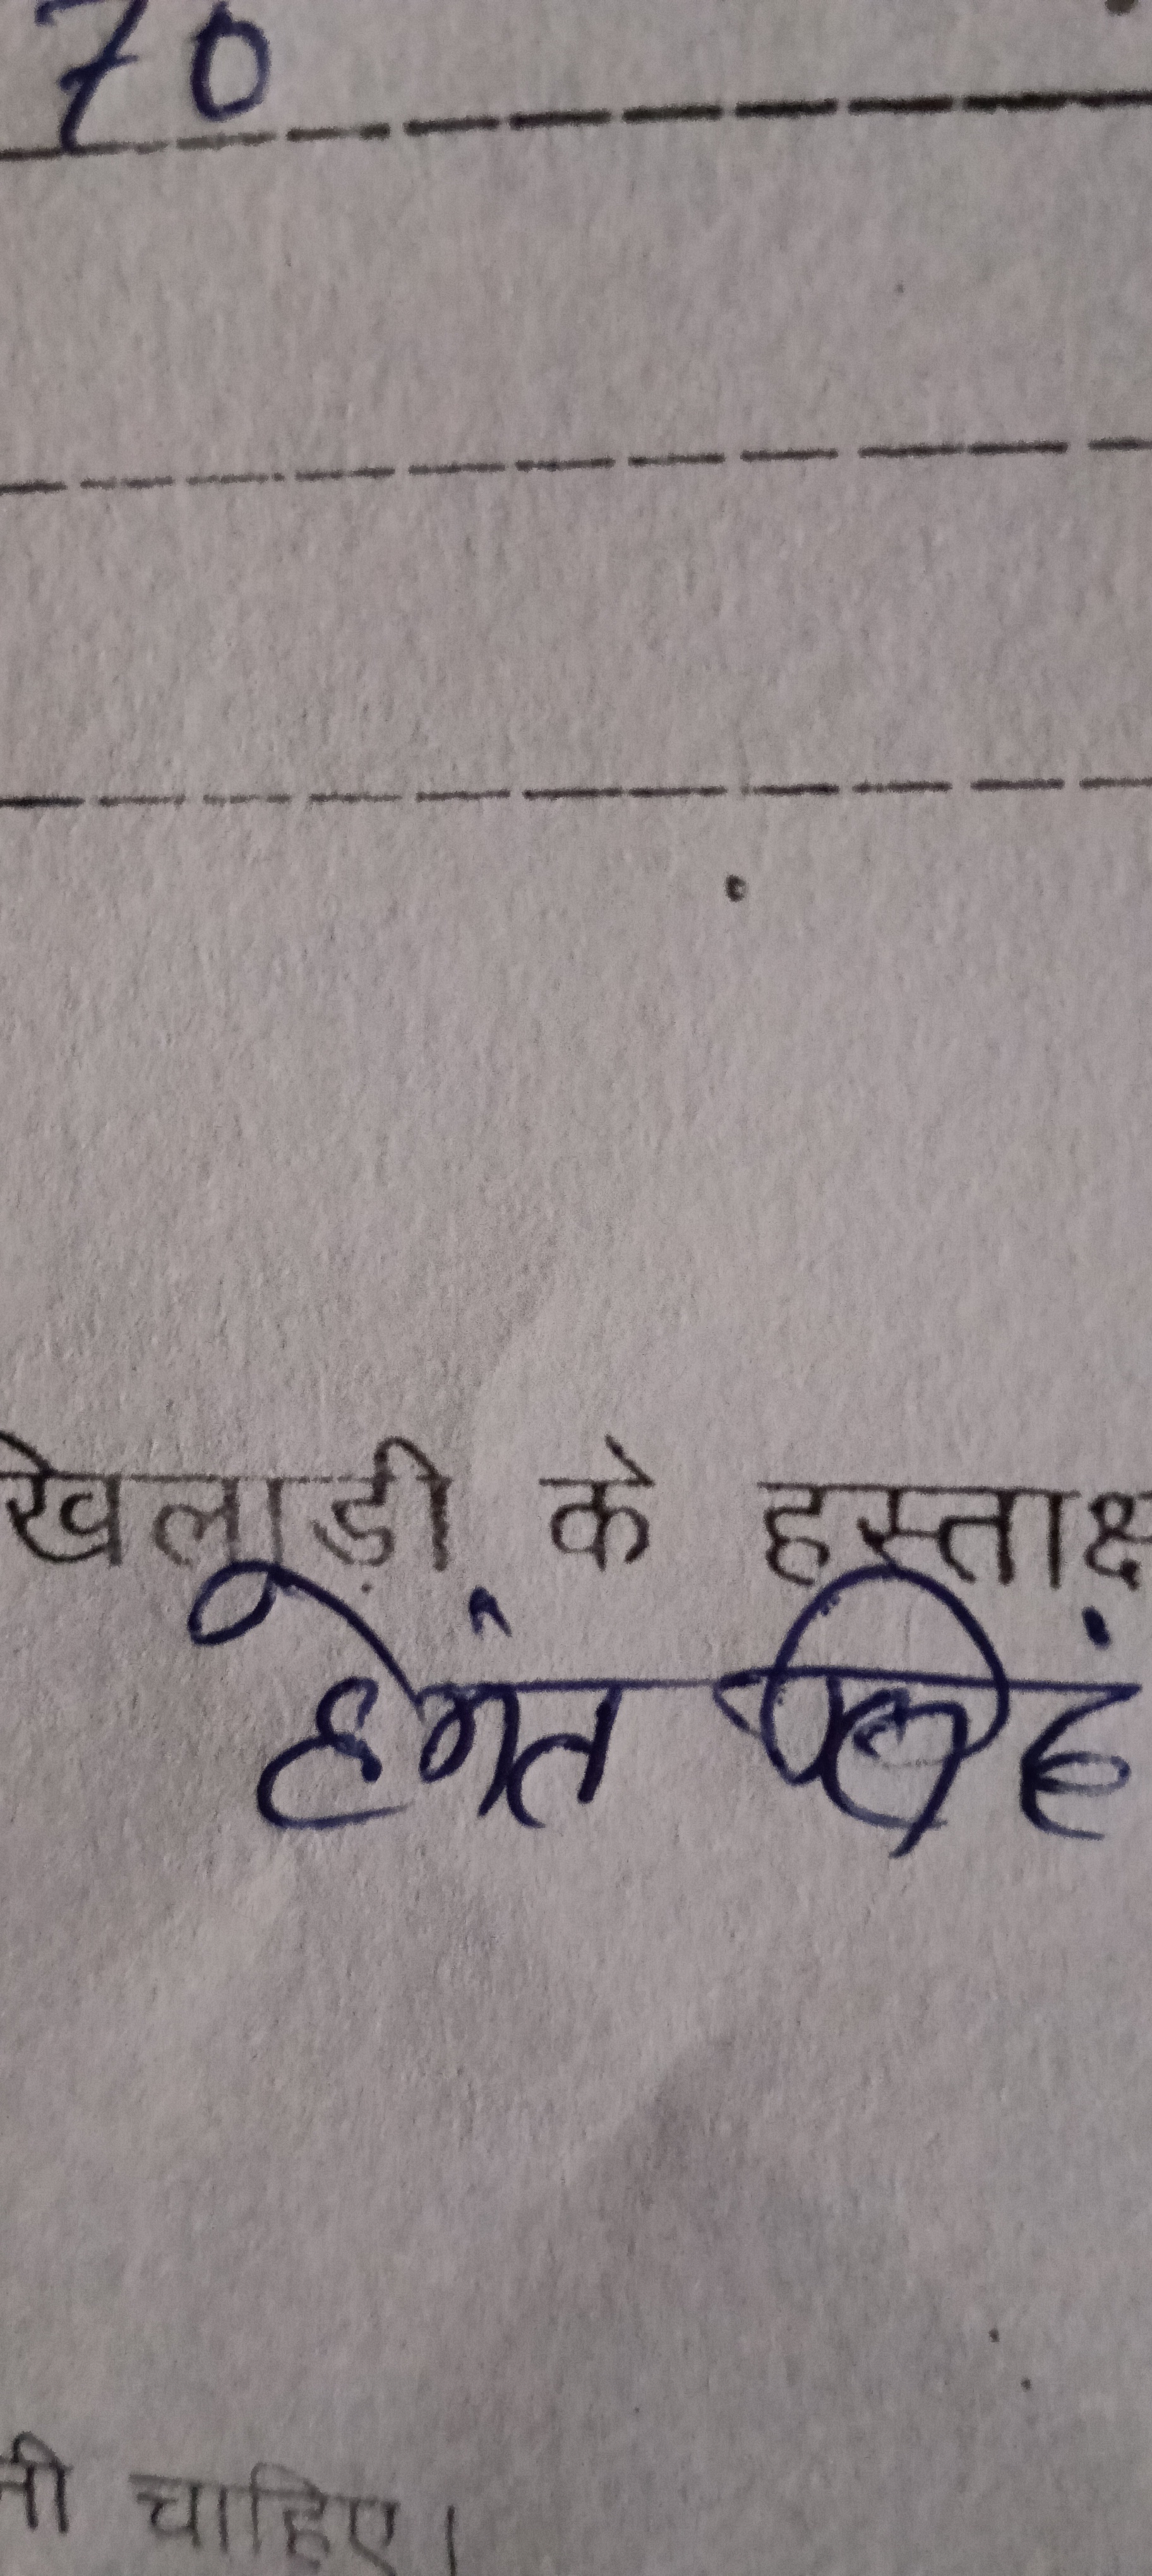 70
खिलाड़ी के हस्ताक्ष
हेमंत
नी चाहिए।